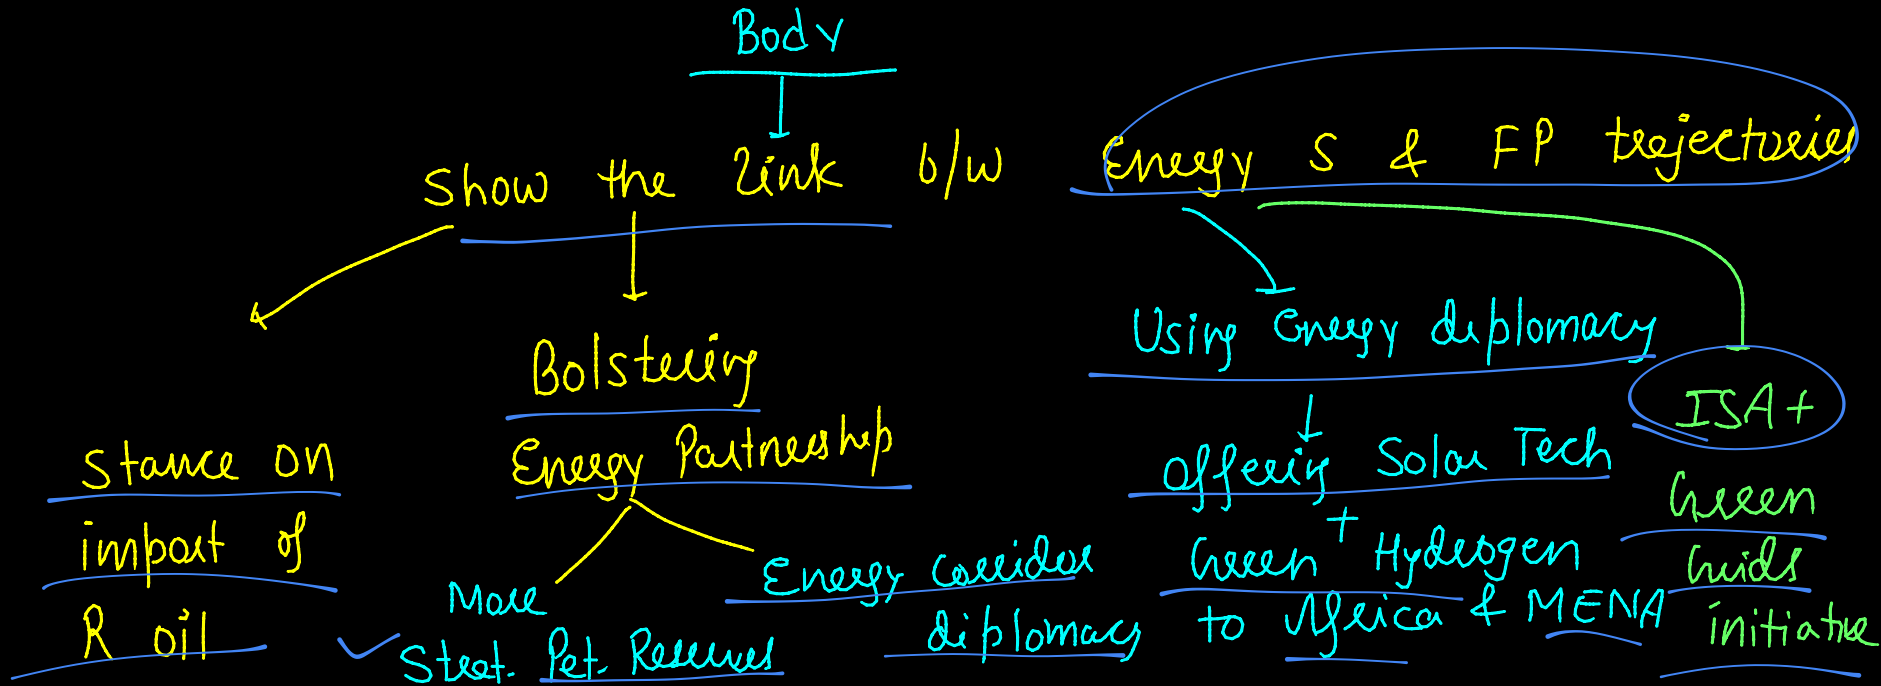 Body
Show the link b/w Energy S & FP trajectories
Stance on
import of
R oil
Bolstering
Energy Partnership
More
Strat. Pet. Reserves
Energy corridor
diplomacy
Using Energy diplomacy
Offering Solar Tech
+
Green Hydrogen
to Africa & MENA
ISA +
Green
Grids
initiative